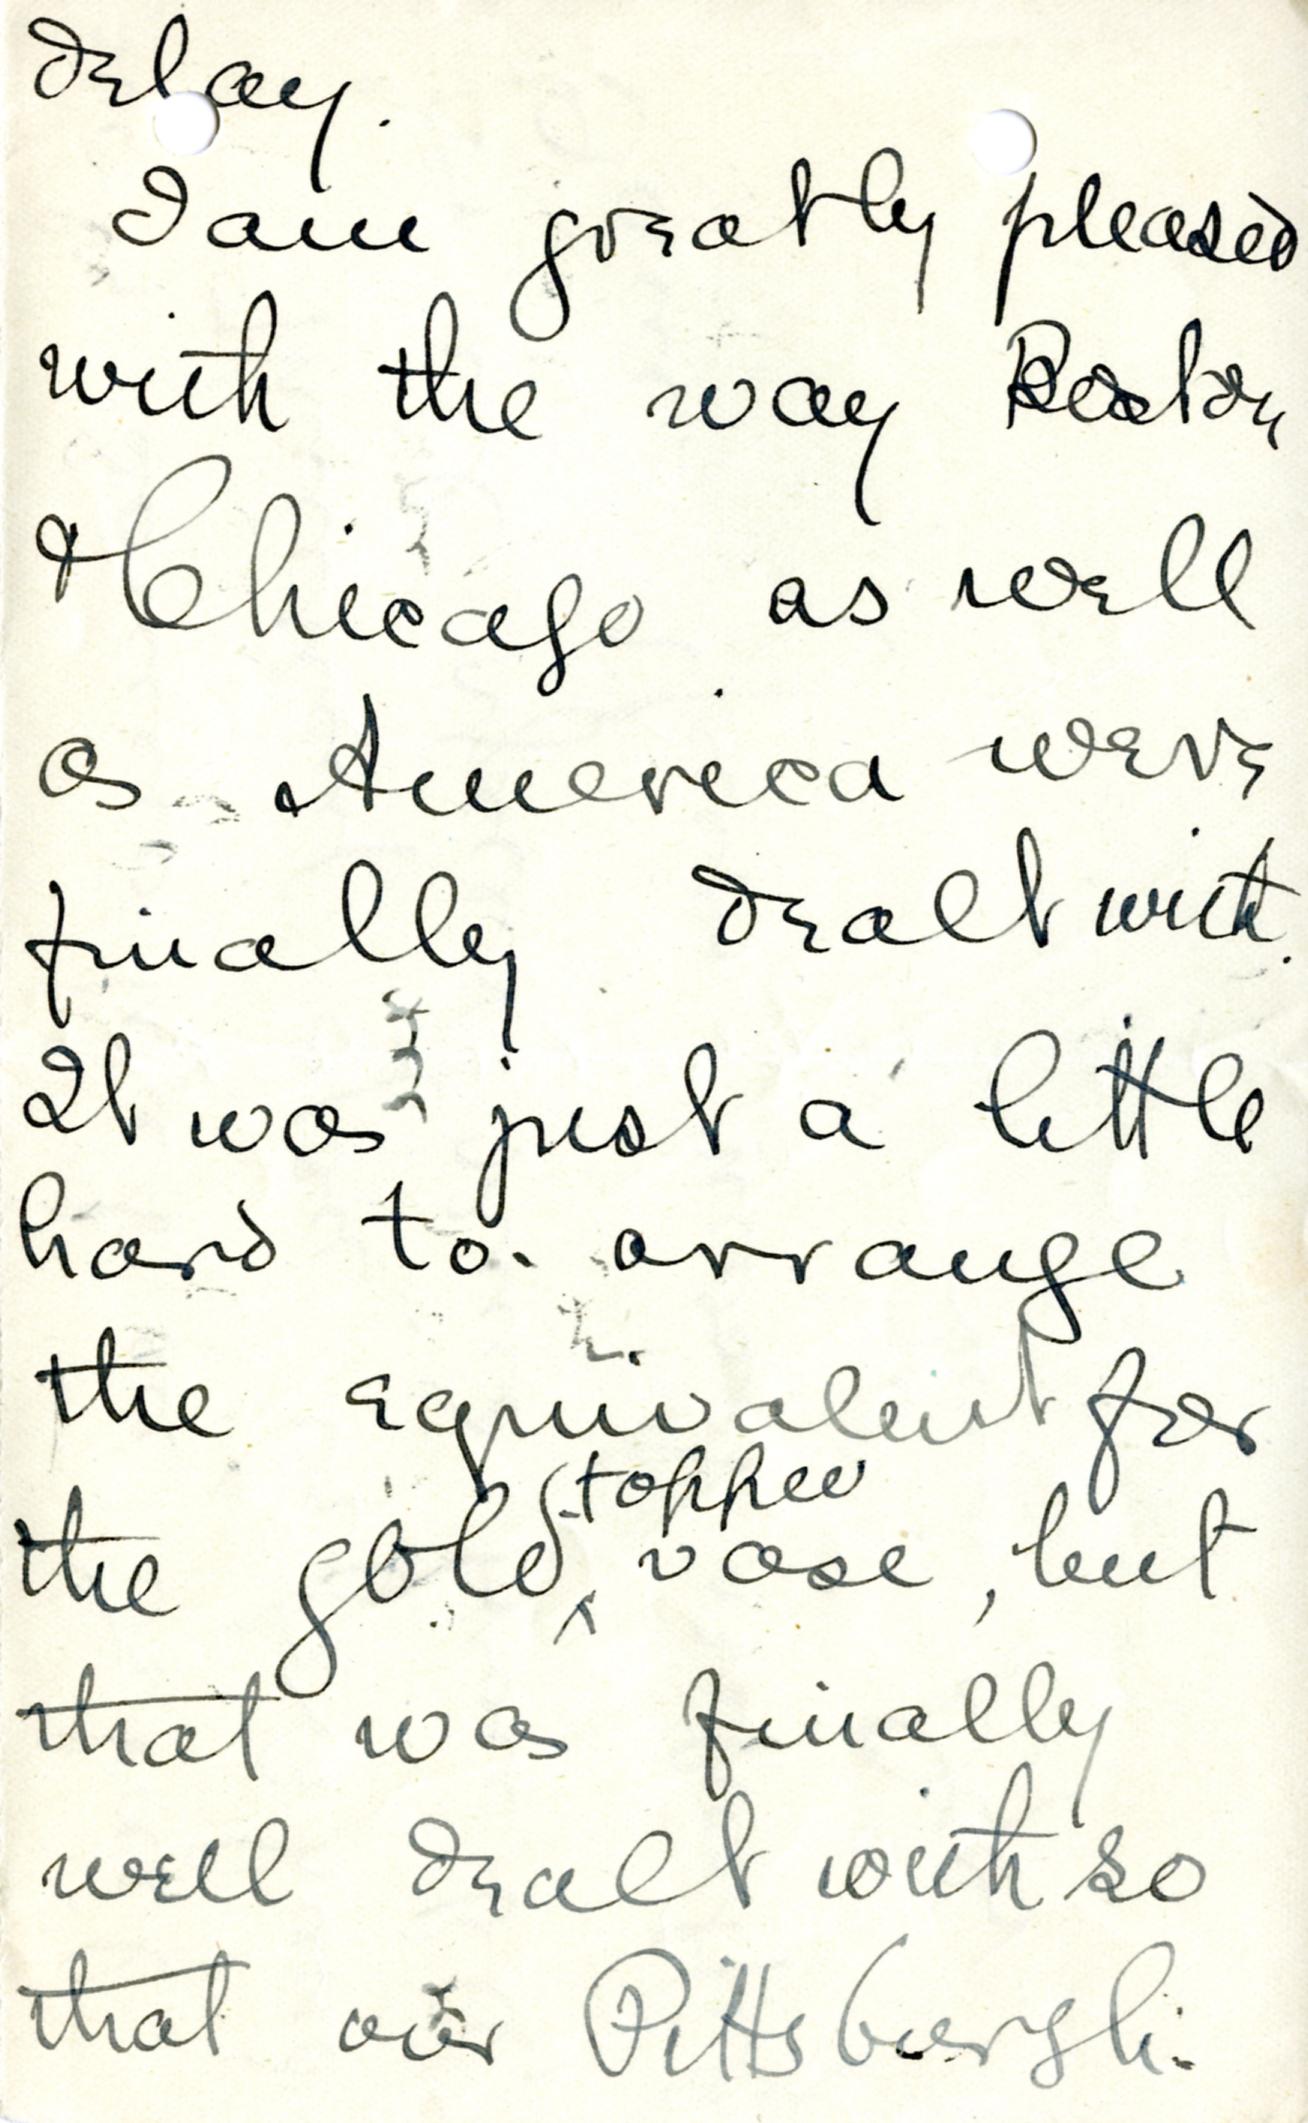 delay.
I am greatly pleased
with the way Boston
& Chicago as well
as America were
finally dealt with.
It was just a little
hard to arrange
the equivalent for
topped
the gold ^ vase, but
that was finally
well dealt with so
that our Pittsburgh.